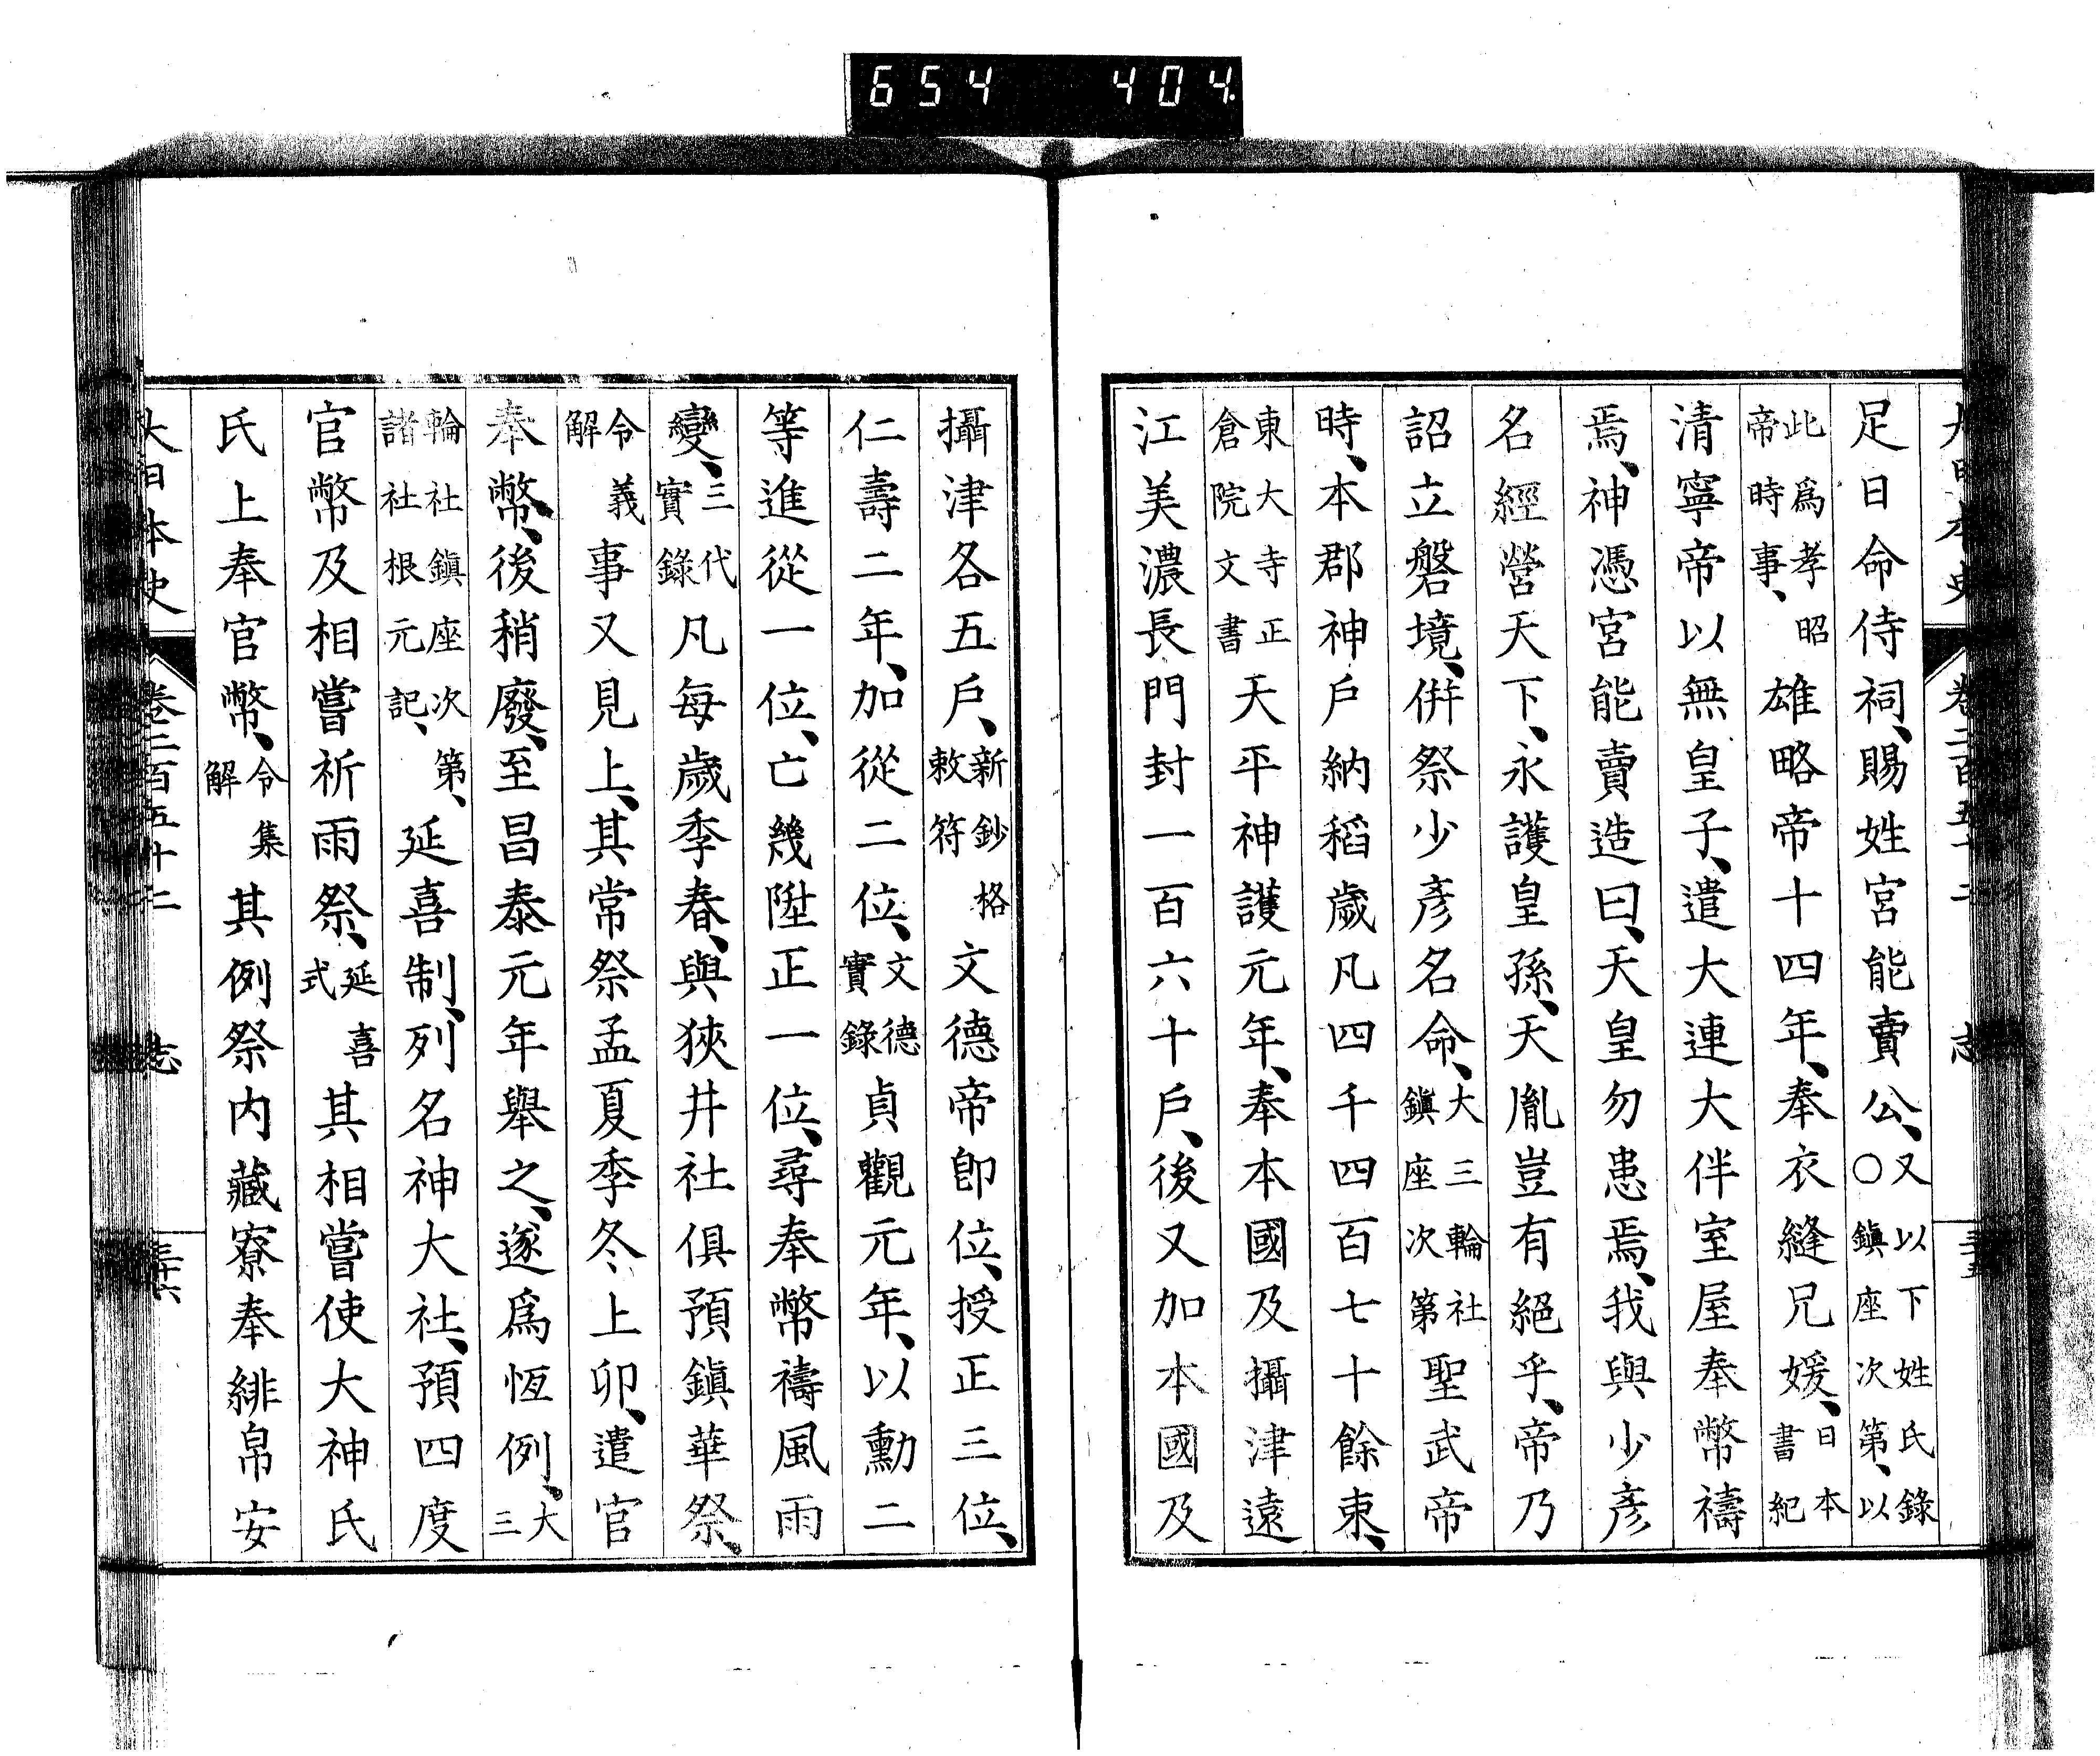 654 404.
足日命侍祠、賜姓宮能賣公、又以下姓氏錄○鎭座次第、以
此爲孝昭帝時事、雄略帝十四年、奉衣縫兄媛、日本書紀
清寧帝以無皇子、遣大連大伴室屋奉幣禱
焉、神憑宮能賣造曰、天皇勿患焉、我與少彦
名經營天下、永護皇孫、天胤豈有絕乎、帝乃
詔立磐境、併祭少彦名命、大三輪社鎭座次第聖武帝
時、本郡神戶納稻歲凡四千四百七十餘束、
東大寺正倉院文書天平神護元年、奉本國及攝津遠
江美濃長門封一百六十戶、後又加本國及
攝津各五戶、新鈔格敕符文德帝卽位、授正三位、
仁壽二年、加從二位、文德實錄貞觀元年、以勳二
等進從一位、亡幾陞正一位、尋奉幣禱風雨
變、三代實錄凡每歲季春、與狹井社俱預鎭華祭、
令義解事又見上、其常祭孟夏季冬上卯、遣官
奉幣、後稍廢、至昌泰元年舉之、遂爲恆例、大三
輪社鎭座次第、諸社根元記、延喜制、列名神大社、預四度
官幣及相嘗祈雨祭、延喜式其相嘗使大神氏
氏上奉官幣、令集解其例祭内藏寮奉緋帛安
大日本史 卷二百五十二 志 三十六